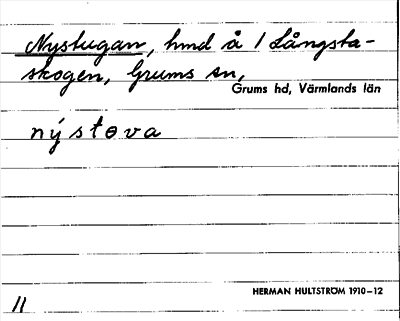 Nystugan, hmd å 1 Långsta-
skogen, Grums sn,
Grums hd, Värmlands län
nýstɵva
HERMAN HULTSTRÖM 1910–12
11